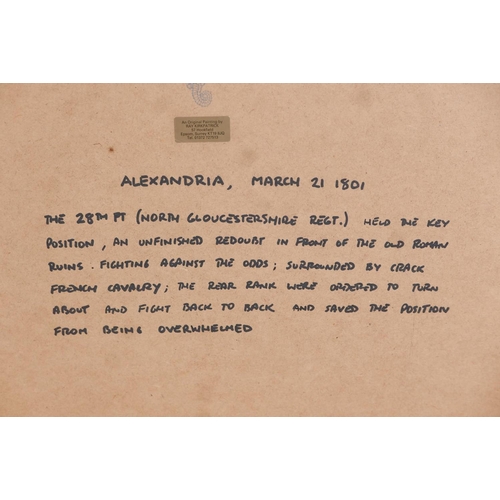 An Original Painting by
ALEXANDRIA, MARCH 21 1801
THE 28TH FT (NORTH GLOUCESTERSHIRE REGT.) HELD THE KEY
POSITION, AN UNFINISHED REDOUBT IN FRONT OF THE OLD ROMAN
RUINS. FIGHTING AGAINST THE ODDS; SURROUNDED BY CRACK
FRENCH CAVALRY; THE REAR RANK WERE ORDERED TO TURN
ABOUT AND FIGHT BACK TO BACK AND SAVED THE POSITION
FROM BEING OVERWHELMED